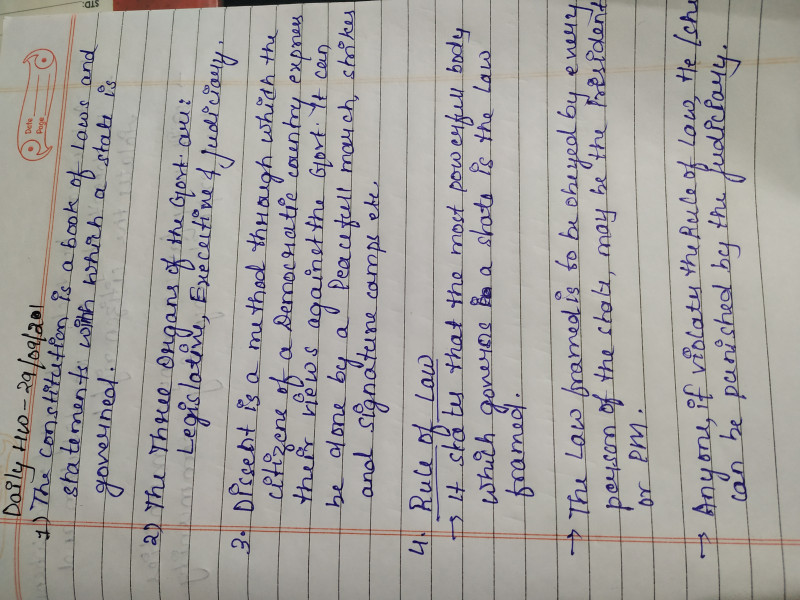 Date
Page
Daily HW - 29/09/201
1) The constitution is a book of Laws and
statements with which a state is
governed.
2) The Three organs of the Govt are:
Legislative, Executive & Judiciary.
3. Dissebt is a method through which the
citizens of a Democratic country express
their views against the Govt. It can
be done by a Peacefull march, strikes
and signature camps etc.
4. Rule of Law
→ It states that the most powerfull body
which governs a state is the law
framed.
→ The Law framed is to be obeyed by every
person of the state, may be the President
or PM.
→ Anyone, if violaty the Rule of Law, the
can be punished by the Judiciary.